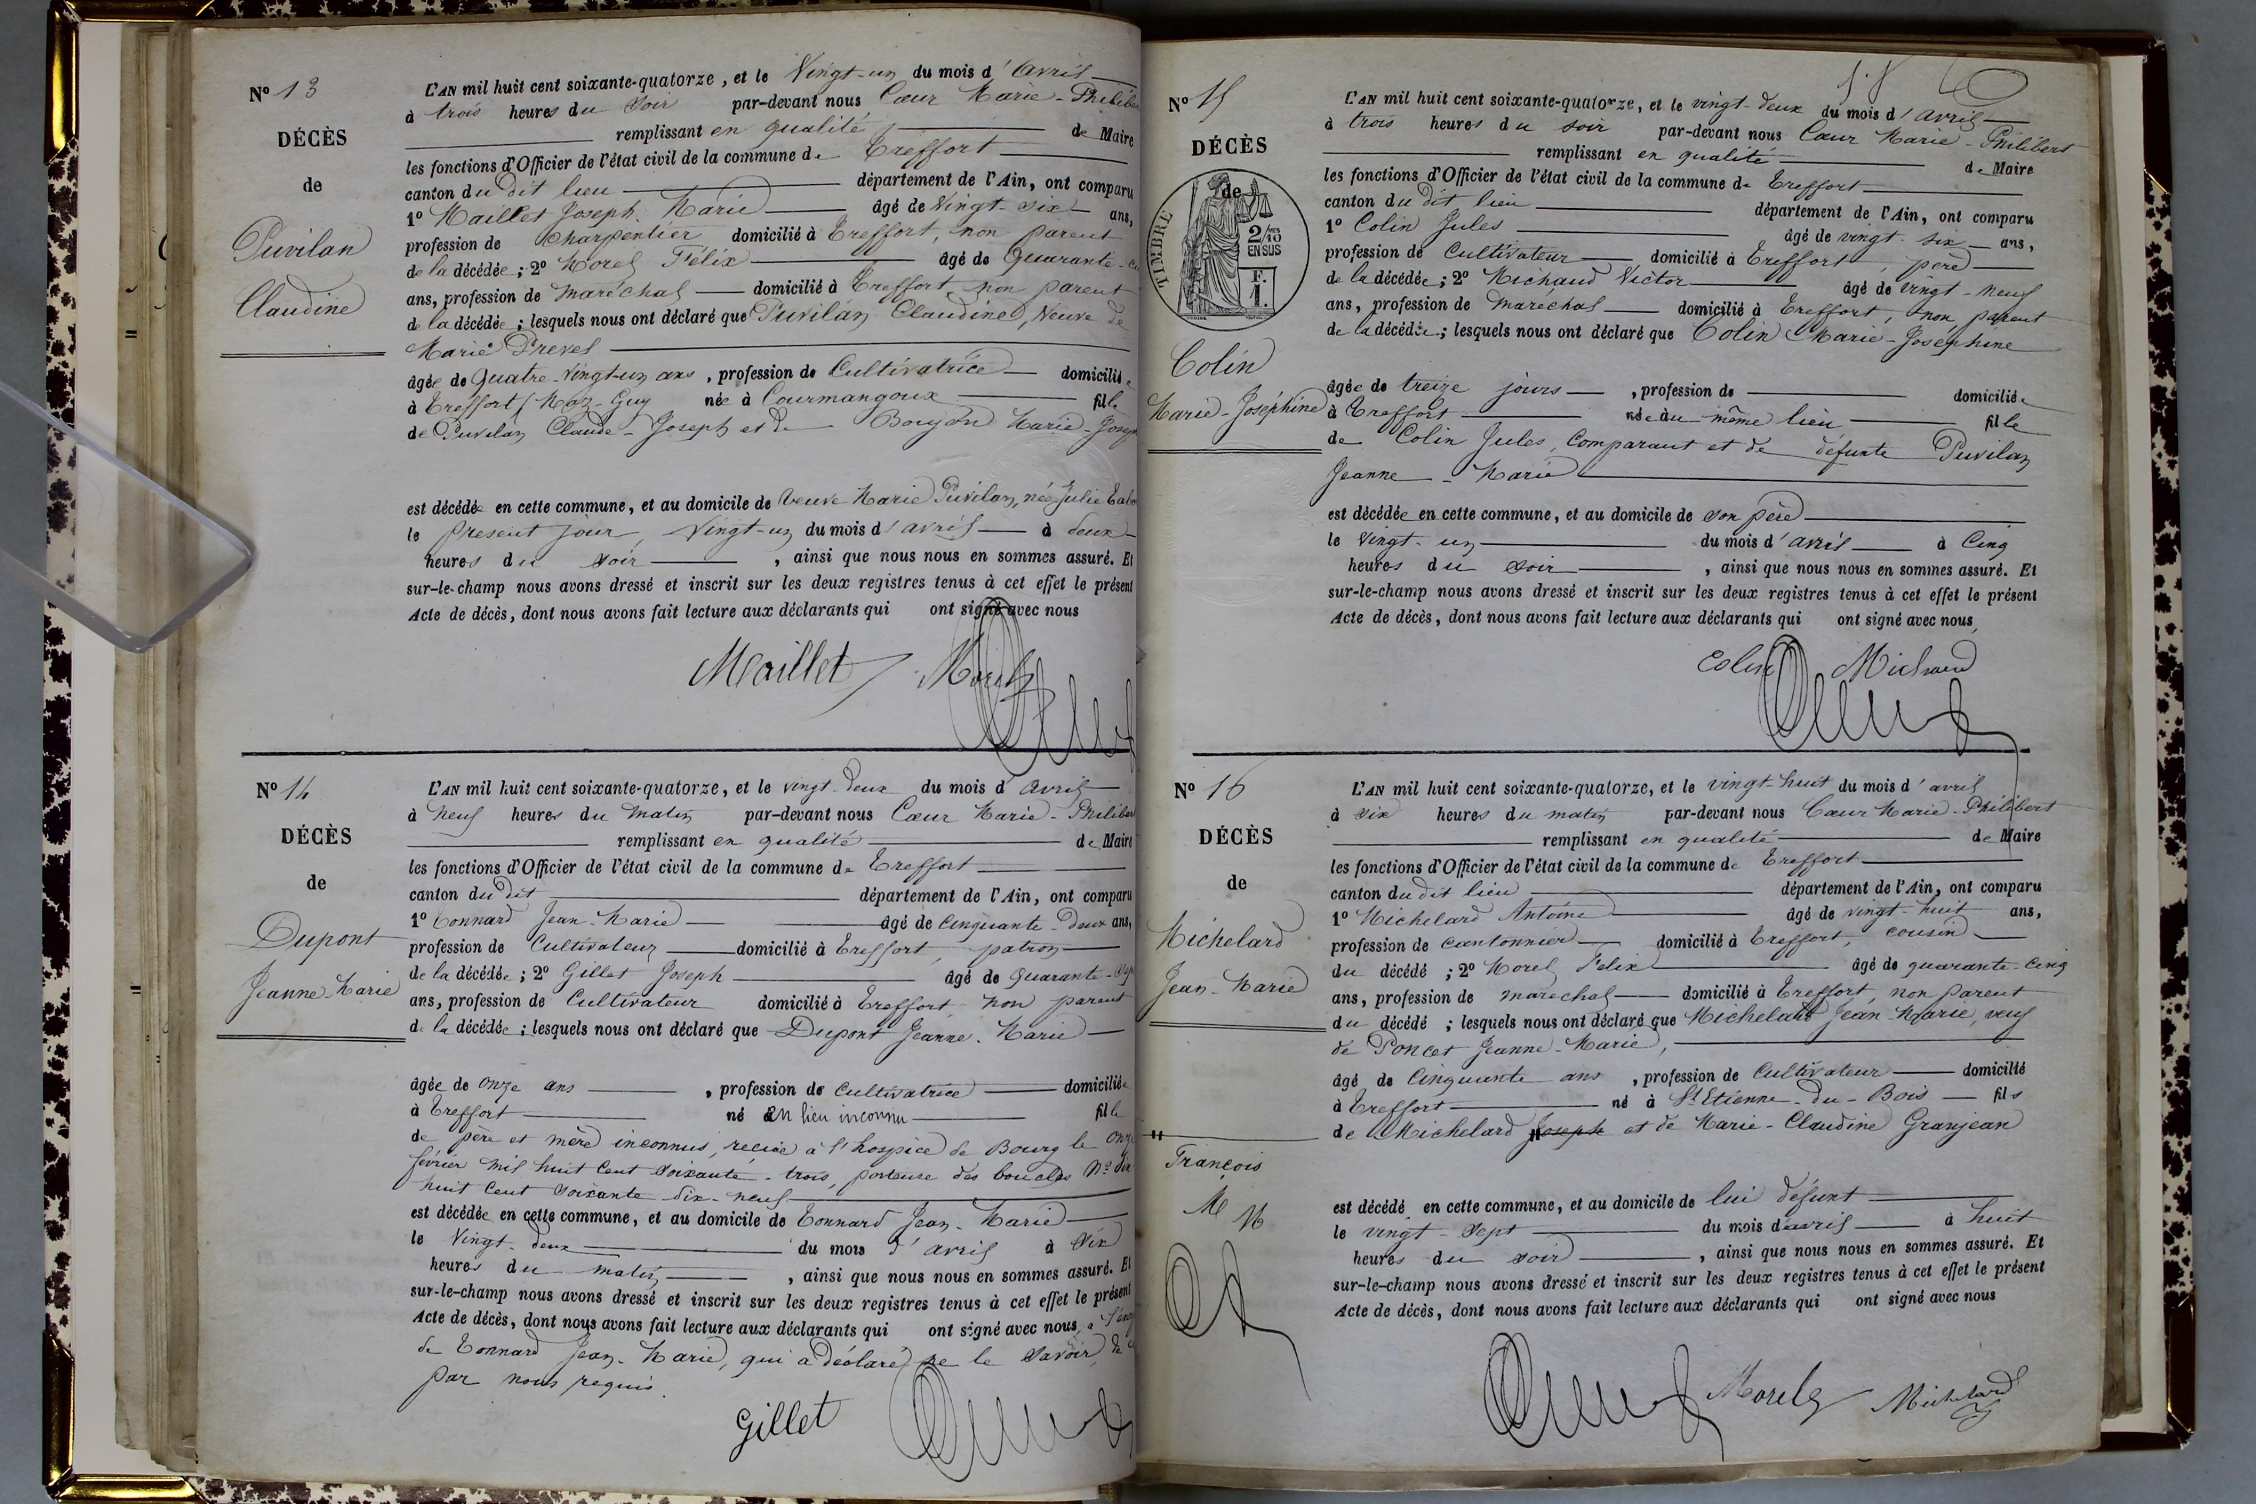 Nº 13
DÉCÈS
de
Puvilan
Claudine
L'AN mil huit cent soixante-quatorze, et le Vingt-un du mois d'avril
à trois heures du soir par-devant nous Cœur Marie-Philibert
remplissant en qualité de Maire
les fonctions d'Officier de l'état civil de la commune de Treffort
canton du dit lieu département de l'Ain, ont comparu
1º Maillet Joseph Marie âgé de Vingt-six ans,
profession de charpentier domicilié à Treffort, non parent
de la décédée; 2º Morel Félix âgé de Quarante-
ans, profession de maréchal domicilié à Treffort non parent
de la décédée; lesquels nous ont déclaré que Puvilan Claudine, Veuve de
Marie Prevel
âgée de Quatre-Vingt-un ans, profession de Cultivatrice domiciliée
à Treffort née à Courmangoux fille
de Puvilan Claude-Joseph et de Boujon Marie-
est décédée en cette commune, et au domicile de Veuve Marie Puvilan, née Julie
le présent jour, Vingt-un du mois d'avril à deux
heures du soir, ainsi que nous nous en sommes assuré. Et
sur-le-champ nous avons dressé et inscrit sur les deux registres tenus à cet effet le présent
Acte de décès, dont nous avons fait lecture aux déclarants qui ont signé avec nous
Maillet Morel
Nº 14
DÉCÈS
de
Dupont
Jeanne-Marie
L'AN mil huit cent soixante-quatorze, et le vingt-deux du mois d'avril
à neuf heures du matin par-devant nous Cœur Marie-Philibert
remplissant en qualité de Maire
les fonctions d'Officier de l'état civil de la commune de Treffort
canton du dit département de l'Ain, ont comparu
1º Tonnard Jean-Marie âgé de cinquante-deux ans,
profession de Cultivateur domicilié à Treffort, patron
de la décédée; 2º Gillet Joseph âgé de quarante-
ans, profession de Cultivateur domicilié à Treffort, non parent
de la décédée; lesquels nous ont déclaré que Dupont Jeanne-Marie
âgée de onze ans, profession de cultivatrice domiciliée
à Treffort né en lieu inconnu fille
de père et mère inconnus, reçue à l'hospice de Bourg le onze
février mil huit cent soixante-trois, porteuse des boucles Nº dix
huit cent soixante-dix-neuf
est décédée en cette commune, et au domicile de Tonnard Jean-Marie
le Vingt-deux du mois d'avril à six
heures du matin, ainsi que nous nous en sommes assuré. Et
sur-le-champ nous avons dressé et inscrit sur les deux registres tenus à cet effet le présent
Acte de décès, dont nous avons fait lecture aux déclarants qui ont signé avec nous, à
de Tonnard Jean-Marie, qui a déclaré ne le savoir, de
par nous requis.
Gillet
Nº 15
DÉCÈS
de
TIMBRE
2/10
EN SUS
F.
1.
Colin
Marie-Joséphine
L'AN mil huit cent soixante-quatorze, et le vingt-deux du mois d'avril
à trois heures du soir par-devant nous Cœur Marie-Philibert
remplissant en qualité de Maire
les fonctions d'Officier de l'état civil de la commune de Treffort
canton du dit lieu département de l'Ain, ont comparu
1º Colin Jules âgé de vingt-six ans,
profession de Cultivateur domicilié à Treffort, père
de la décédée; 2º Michaud Victor âgé de vingt-neuf
ans, profession de maréchal domicilié à Treffort, non parent
de la décédée; lesquels nous ont déclaré que Colin Marie-Joséphine
âgée de treize jours, profession de domiciliée
à Treffort née au même lieu fille
de Colin Jules, comparant et de défunte Puvilan
Jeanne-Marie
est décédée en cette commune, et au domicile de son père
le vingt-un du mois d'avril à cinq
heures du soir, ainsi que nous nous en sommes assuré. Et
sur-le-champ nous avons dressé et inscrit sur les deux registres tenus à cet effet le présent
Acte de décès, dont nous avons fait lecture aux déclarants qui ont signé avec nous
Colin Michaud
Nº 16
DÉCÈS
de
Michelard
Jean-Marie
François
M M
L'AN mil huit cent soixante-quatorze, et le vingt-huit du mois d'avril
à six heures du matin par-devant nous Cœur Marie-Philibert
remplissant en qualité de Maire
les fonctions d'Officier de l'état civil de la commune de Treffort
canton du dit lieu département de l'Ain, ont comparu
1º Michelard Antoine âgé de vingt-huit ans,
profession de cantonnier domicilié à Treffort, cousin
du décédé; 2º Morel Félix âgé de quarante-cinq
ans, profession de maréchal domicilié à Treffort, non parent
du décédé; lesquels nous ont déclaré que Michelard Jean-Marie, veuf
de Poncet Jeanne-Marie,
âgé de cinquante ans, profession de Cultivateur domicilié
à Treffort né à St Etienne-du-Bois fils
de Michelard Joseph et de Marie-Claudine Granjean
est décédé en cette commune, et au domicile de lui défunt
le vingt-sept du mois d'avril à huit
heures du soir, ainsi que nous nous en sommes assuré. Et
sur-le-champ nous avons dressé et inscrit sur les deux registres tenus à cet effet le présent
Acte de décès, dont nous avons fait lecture aux déclarants qui ont signé avec nous
Morel Michelard